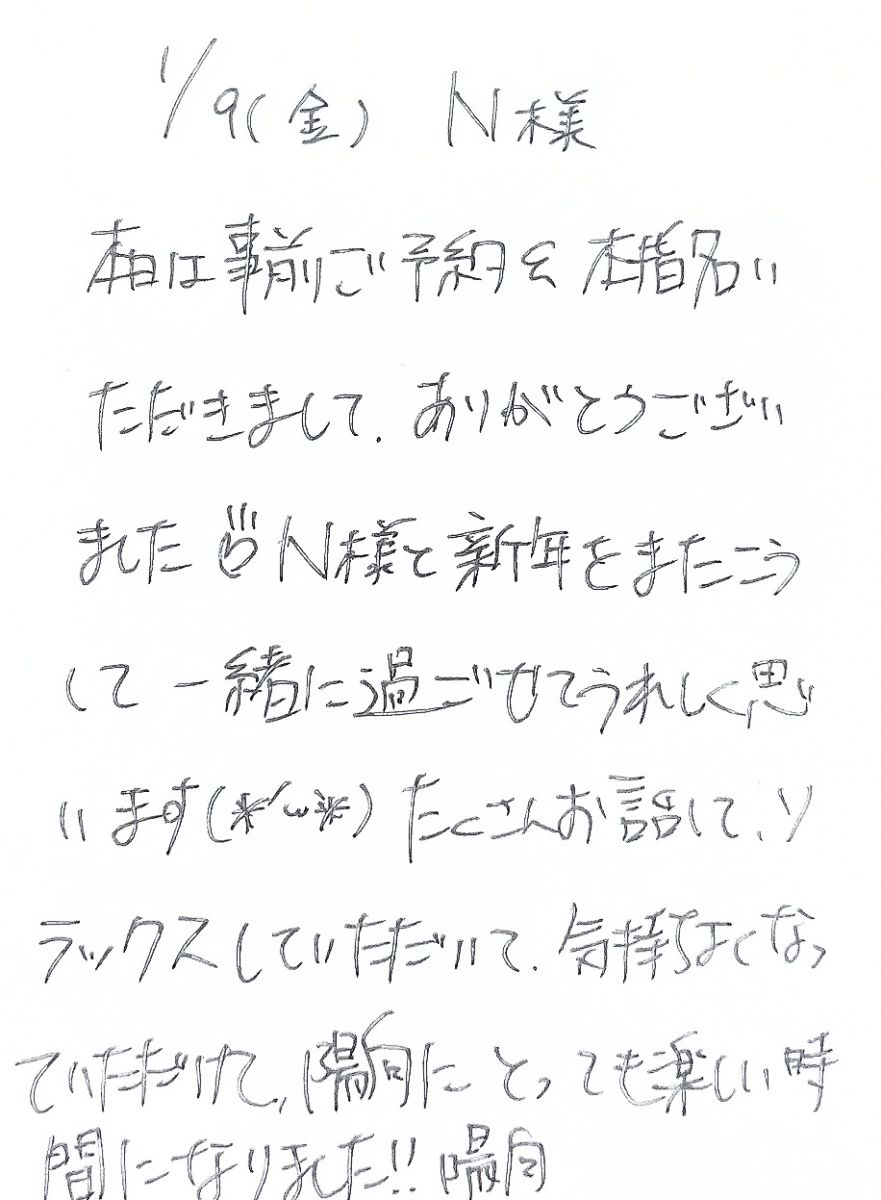 1/9(金) N様
本日は事前ご予約&本指名い
ただきまして、ありがとうござい
ましたN様と新年をまたこう
して一緒に過ごせてうれしく思
います(*´ω`*)たくさんお話して、リ
ラックスしていただいて、気持ちよくなっ
ていただけて、陽向にとっても楽しい時
間になりました!!陽向